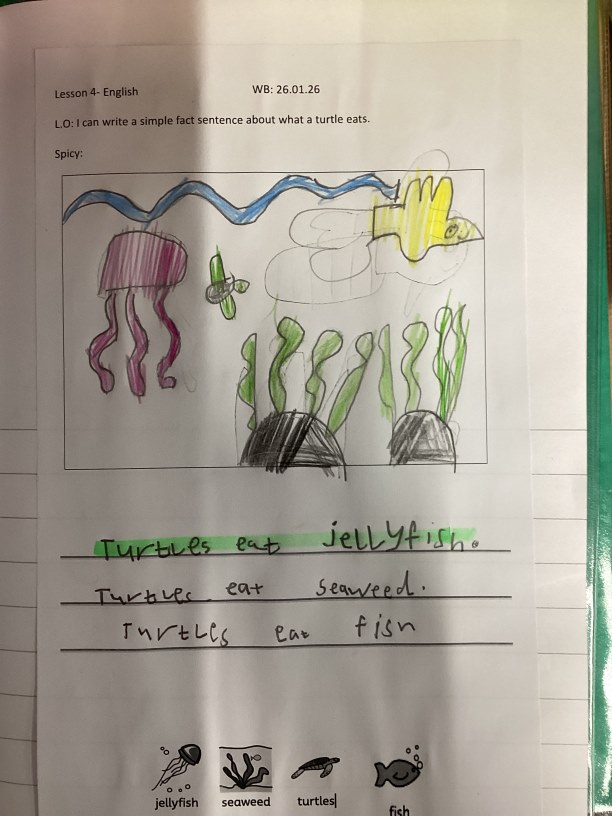 Lesson 4- English WB: 26.01.26
L.O: I can write a simple fact sentence about what a turtle eats.
Spicy:
Turtles eat jellyfish.
Turtles eat seaweed.
Turtles eat fish
jellyfish seaweed turtles fish